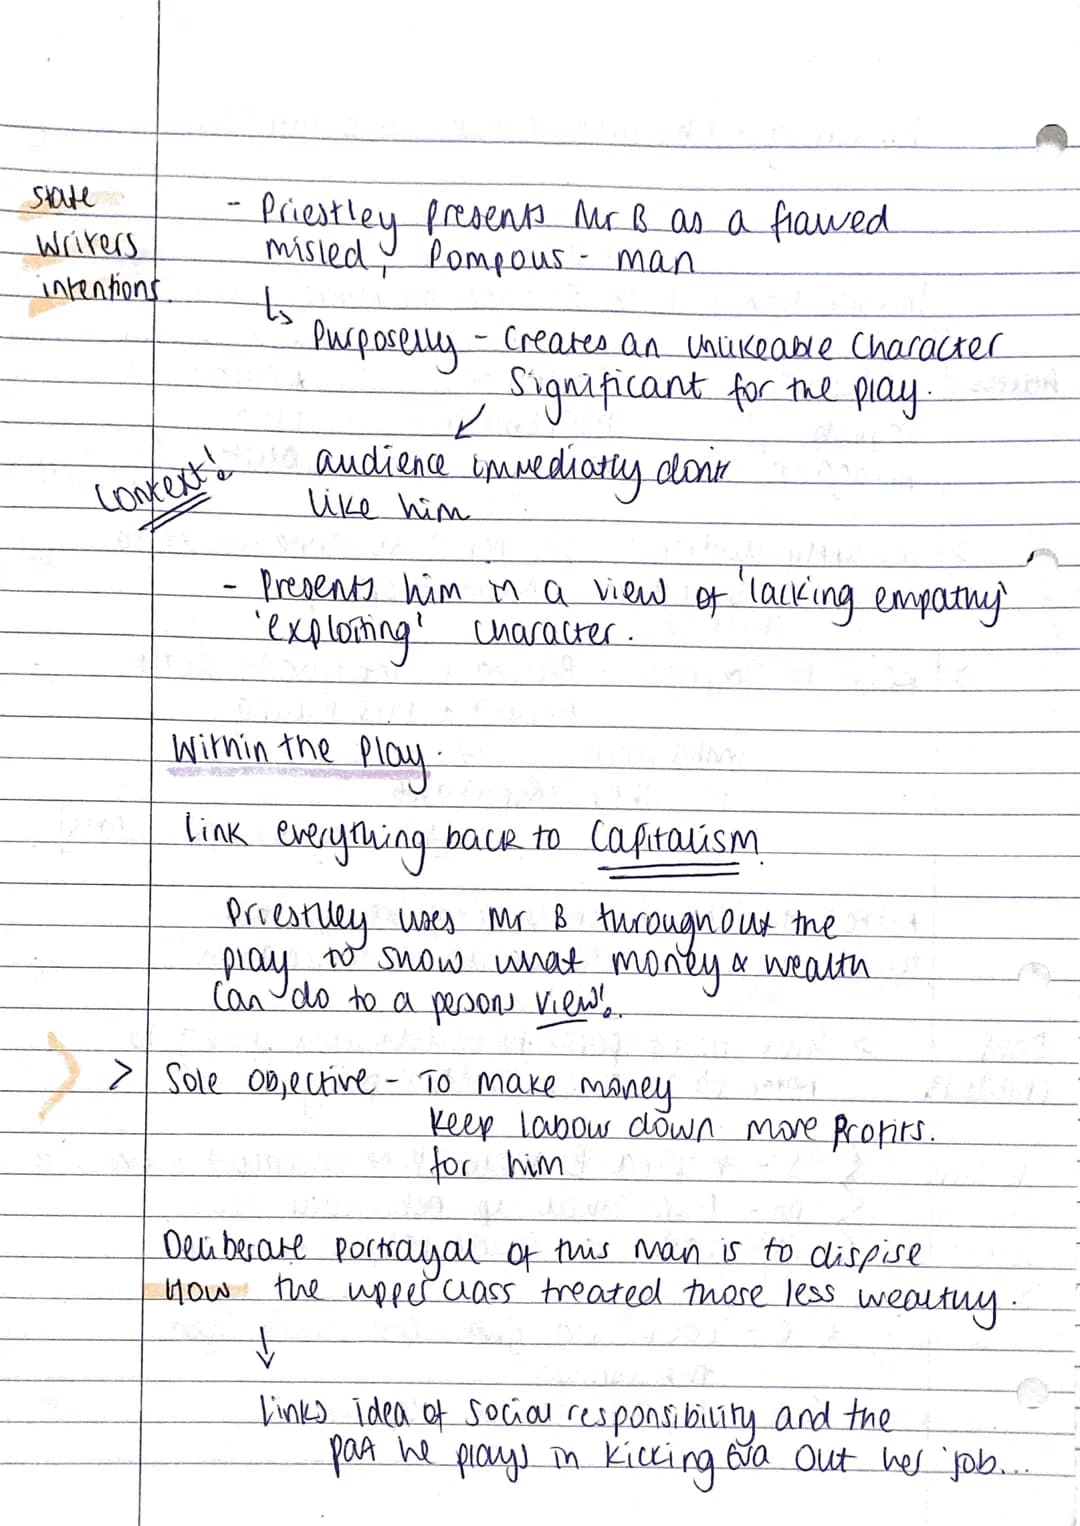 State
Writers
intentions.
- Priestley presents Mr B as a flawed
misled, Pompous - man
↳ Purposelly - Creates an unlikeable Character
Significant for the play.
↙
Context!
audience immediatly dont
like him
- Presents him in a view of 'lacking empathy'
'exploiting' character.
Within the Play.
Link everything back to Capitalism.
Priestlley uses Mr B throughout the
play to show what money & wealth
can do to a persons view!
> Sole objective - To make money
keep labour down more Profits.
for him
Deliberate portrayal of this man is to dispise
How the upper class treated those less wealthy.
↓
Links idea of Social responsibility and the
part he plays in kicking Eva out her job...